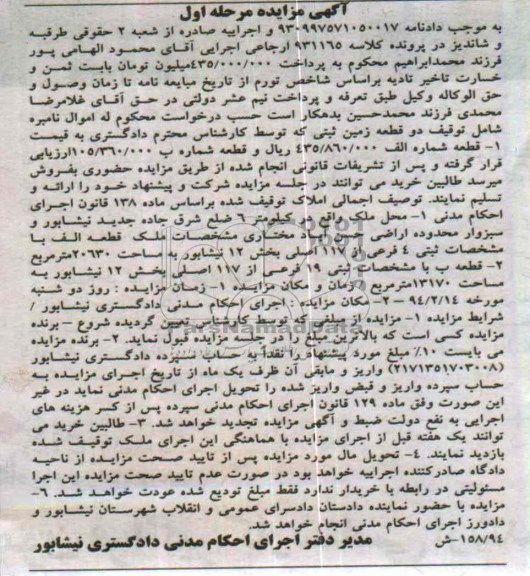 آگهی مزایده مرحله اول
به موجب دادنامه ۹۳۰۹۹۷۵۷۱۰۵۰۰۱۷ و اجراییه صادره از شعبه ۲ حقوقی طرقبه
و شاندیز در پرونده کلاسه ۹۳۱۱۶۵ ارجاعی اجرایی آقای محمود الهامی پور
فرزند محمدابراهیم محکوم به پرداخت ۴۳۵/۰۰۰/۰۰۰میلیون تومان بابت ثمن و
خسارت تاخیر تادیه براساس شاخص تورم از تاریخ مبایعه نامه تا زمان وصول و
حق الوکاله وکیل طبق تعرفه و پرداخت نیم عشر دولتی در حق آقای غلامرضا
محمدی فرزند محمدحسین بدهکار است حسب درخواست محکوم له اموال نامبره
شامل توقیف دو قطعه زمین ثبتی که توسط کارشناس محترم دادگستری به قیمت
۱- قطعه شماره الف ۴۳۵/۸۶۰/۰۰۰ ریال و قطعه شماره ب ۱۰۵/۳۶۰/۰۰۰ارزیابی
قرار گرفته و پس از تشریفات قانونی انجام شده از طریق مزایده حضوری بفروش
میرسد طالبین خرید می توانند در جلسه مزایده شرکت و پیشنهاد خود را ارائه و
تسلیم نمایند. توصیف اجمالی املاک توقیف شده براساس ماده ۱۳۸ قانون اجرای
احکام مدنی ۱- محل ملک واقع در کیلومتر ۶ ضلع شرق جاده جدید نیشابور و
سبزوار محدوده اراضی حسن آباد مختاری مشخصات ملک قطعه الف با
مشخصات ثبتی ۴ فرعی از ۱۱۷ اصلی بخش ۱۲ نیشابور به مساحت ۲۰۶۳۰مترمربع
۲- قطعه ب با مشخصات ثبتی ۱۹ فرعی از ۱۱۷ اصلی بخش ۱۲ نیشابور به
مساحت ۱۳۱۷۰مترمربع /زمان و مکان مزایده ۱- زمان مزایده : روز دو شنبه
مورخه ۹۴/۲/۱۴ – ۲- مکان مزایده : اجرای احکام مدنی دادگستری نیشابور /
شرایط مزایده ۱- مزایده از مبلغی که توسط کارشناس تعیین گردیده شروع – برنده
مزایده کسی است که بالاترین مبلغ را در جلسه مزایده قبول نماید. ۲- برنده مزایده
می بایست ۱۰٪ مبلغ مورد پیشنهاد را نقداً به حساب سپرده دادگستری نیشابور
(۲۱۷۱۳۵۱۷۰۳۰۰۸) واریز و مابقی آن ظرف یک ماه از تاریخ اجرای مزایده به
حساب سپرده واریز و قبض واریز شده را تحویل اجرای احکام مدنی نماید در غیر
این صورت وفق ماده ۱۲۹ قانون اجرای احکام مدنی سپرده پس از کسر هزینه های
اجرایی به نفع دولت ضبط و آگهی مزایده تجدید خواهد شد. ۳- طالبین خرید می
توانند یک هفته قبل از اجرای مزایده با هماهنگی این اجرای ملک توقیف شده
بازدید نمایند. ۴- تحویل مال مورد مزایده پس از تایید صحت مزایده از ناحیه
دادگاه صادرکننده اجراییه خواهد بود در صورت عدم تایید صحت مزایده این اجرا
مسئولیتی در رابطه با خریدار ندارد فقط مبلغ تودیع شده عودت خواهد شد. ۶-
مزایده با حضور نماینده دادستان دادسرای عمومی و انقلاب شهرستان نیشابور و
دادورز اجرای احکام مدنی انجام خواهد شد.
۱۵۸/۹۴-ش مدیر دفتر اجرای احکام مدنی دادگستری نیشابور
ParsNamadData